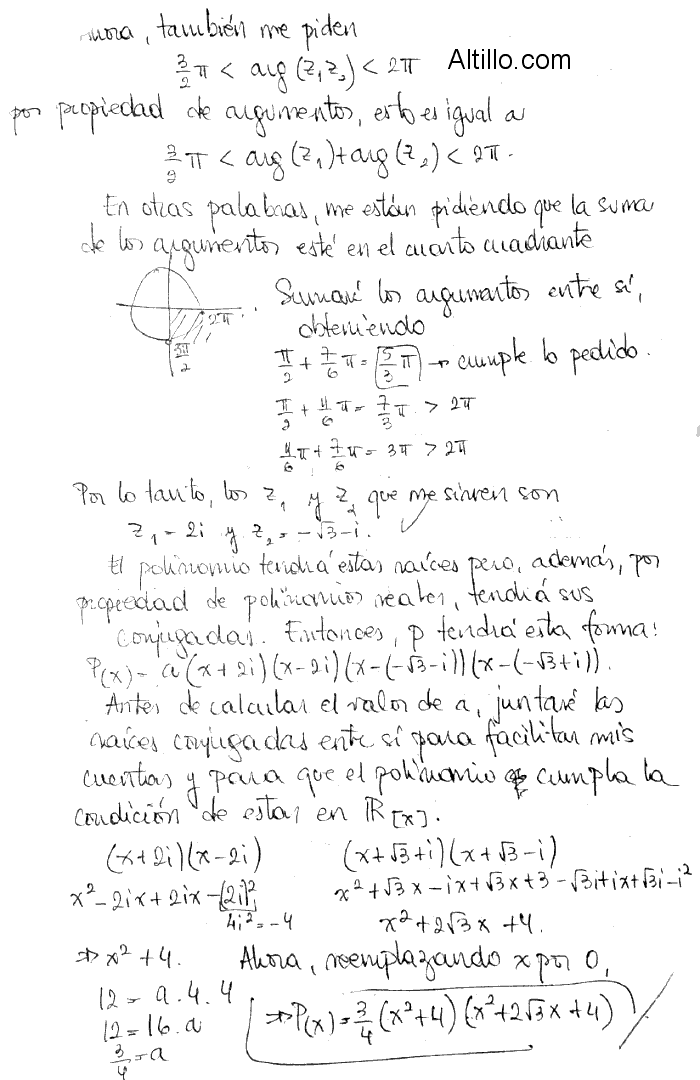 ahora, también me piden
Altillo.com
3/2 π < arg(z₁z₂) < 2π
por propiedad de argumentos, esto es igual a
3/2 π < arg(z₁)+arg(z₂) < 2π.
En otras palabras, me están pidiendo que la suma
de los argumentos esté en el cuarto cuadrante
2π
3π/2
Sumaré los argumentos entre sí,
obteniendo
π/2 + 7/6 π = 5/3 π → cumple lo pedido.
π/2 + 11/6 π = 7/3 π > 2π
11/6 π + 7/6 π = 3π > 2π
Por lo tanto, los z₁ y z₂ que me sirven son
z₁ = 2i y z₂ = -√3-i.
El polinomio tendrá estas raíces pero, además, por
propiedad de polinomios reales, tendrá sus
conjugadas. Entonces, p tendrá esta forma:
P(x) = a(x+2i)(x-2i)(x-(-√3-i))(x-(-√3+i)).
Antes de calcular el valor de a, juntaré las
raíces conjugadas entre sí para facilitar mis
cuentas y para que el polinomio cumpla la
condición de estar en ℝ[x].
(x+2i)(x-2i)
x²-2ix+2ix-(2i)²
4i²=-4
⇒ x²+4.
(x+√3+i)(x+√3-i)
x²+√3x-ix+√3x+3-√3i+ix+√3i-i²
x²+2√3x+4.
Ahora, reemplazando x por 0,
12 = a.4.4
12 = 16.a
3/4 = a
⇒ P(x) = 3/4 (x²+4)(x²+2√3x+4)